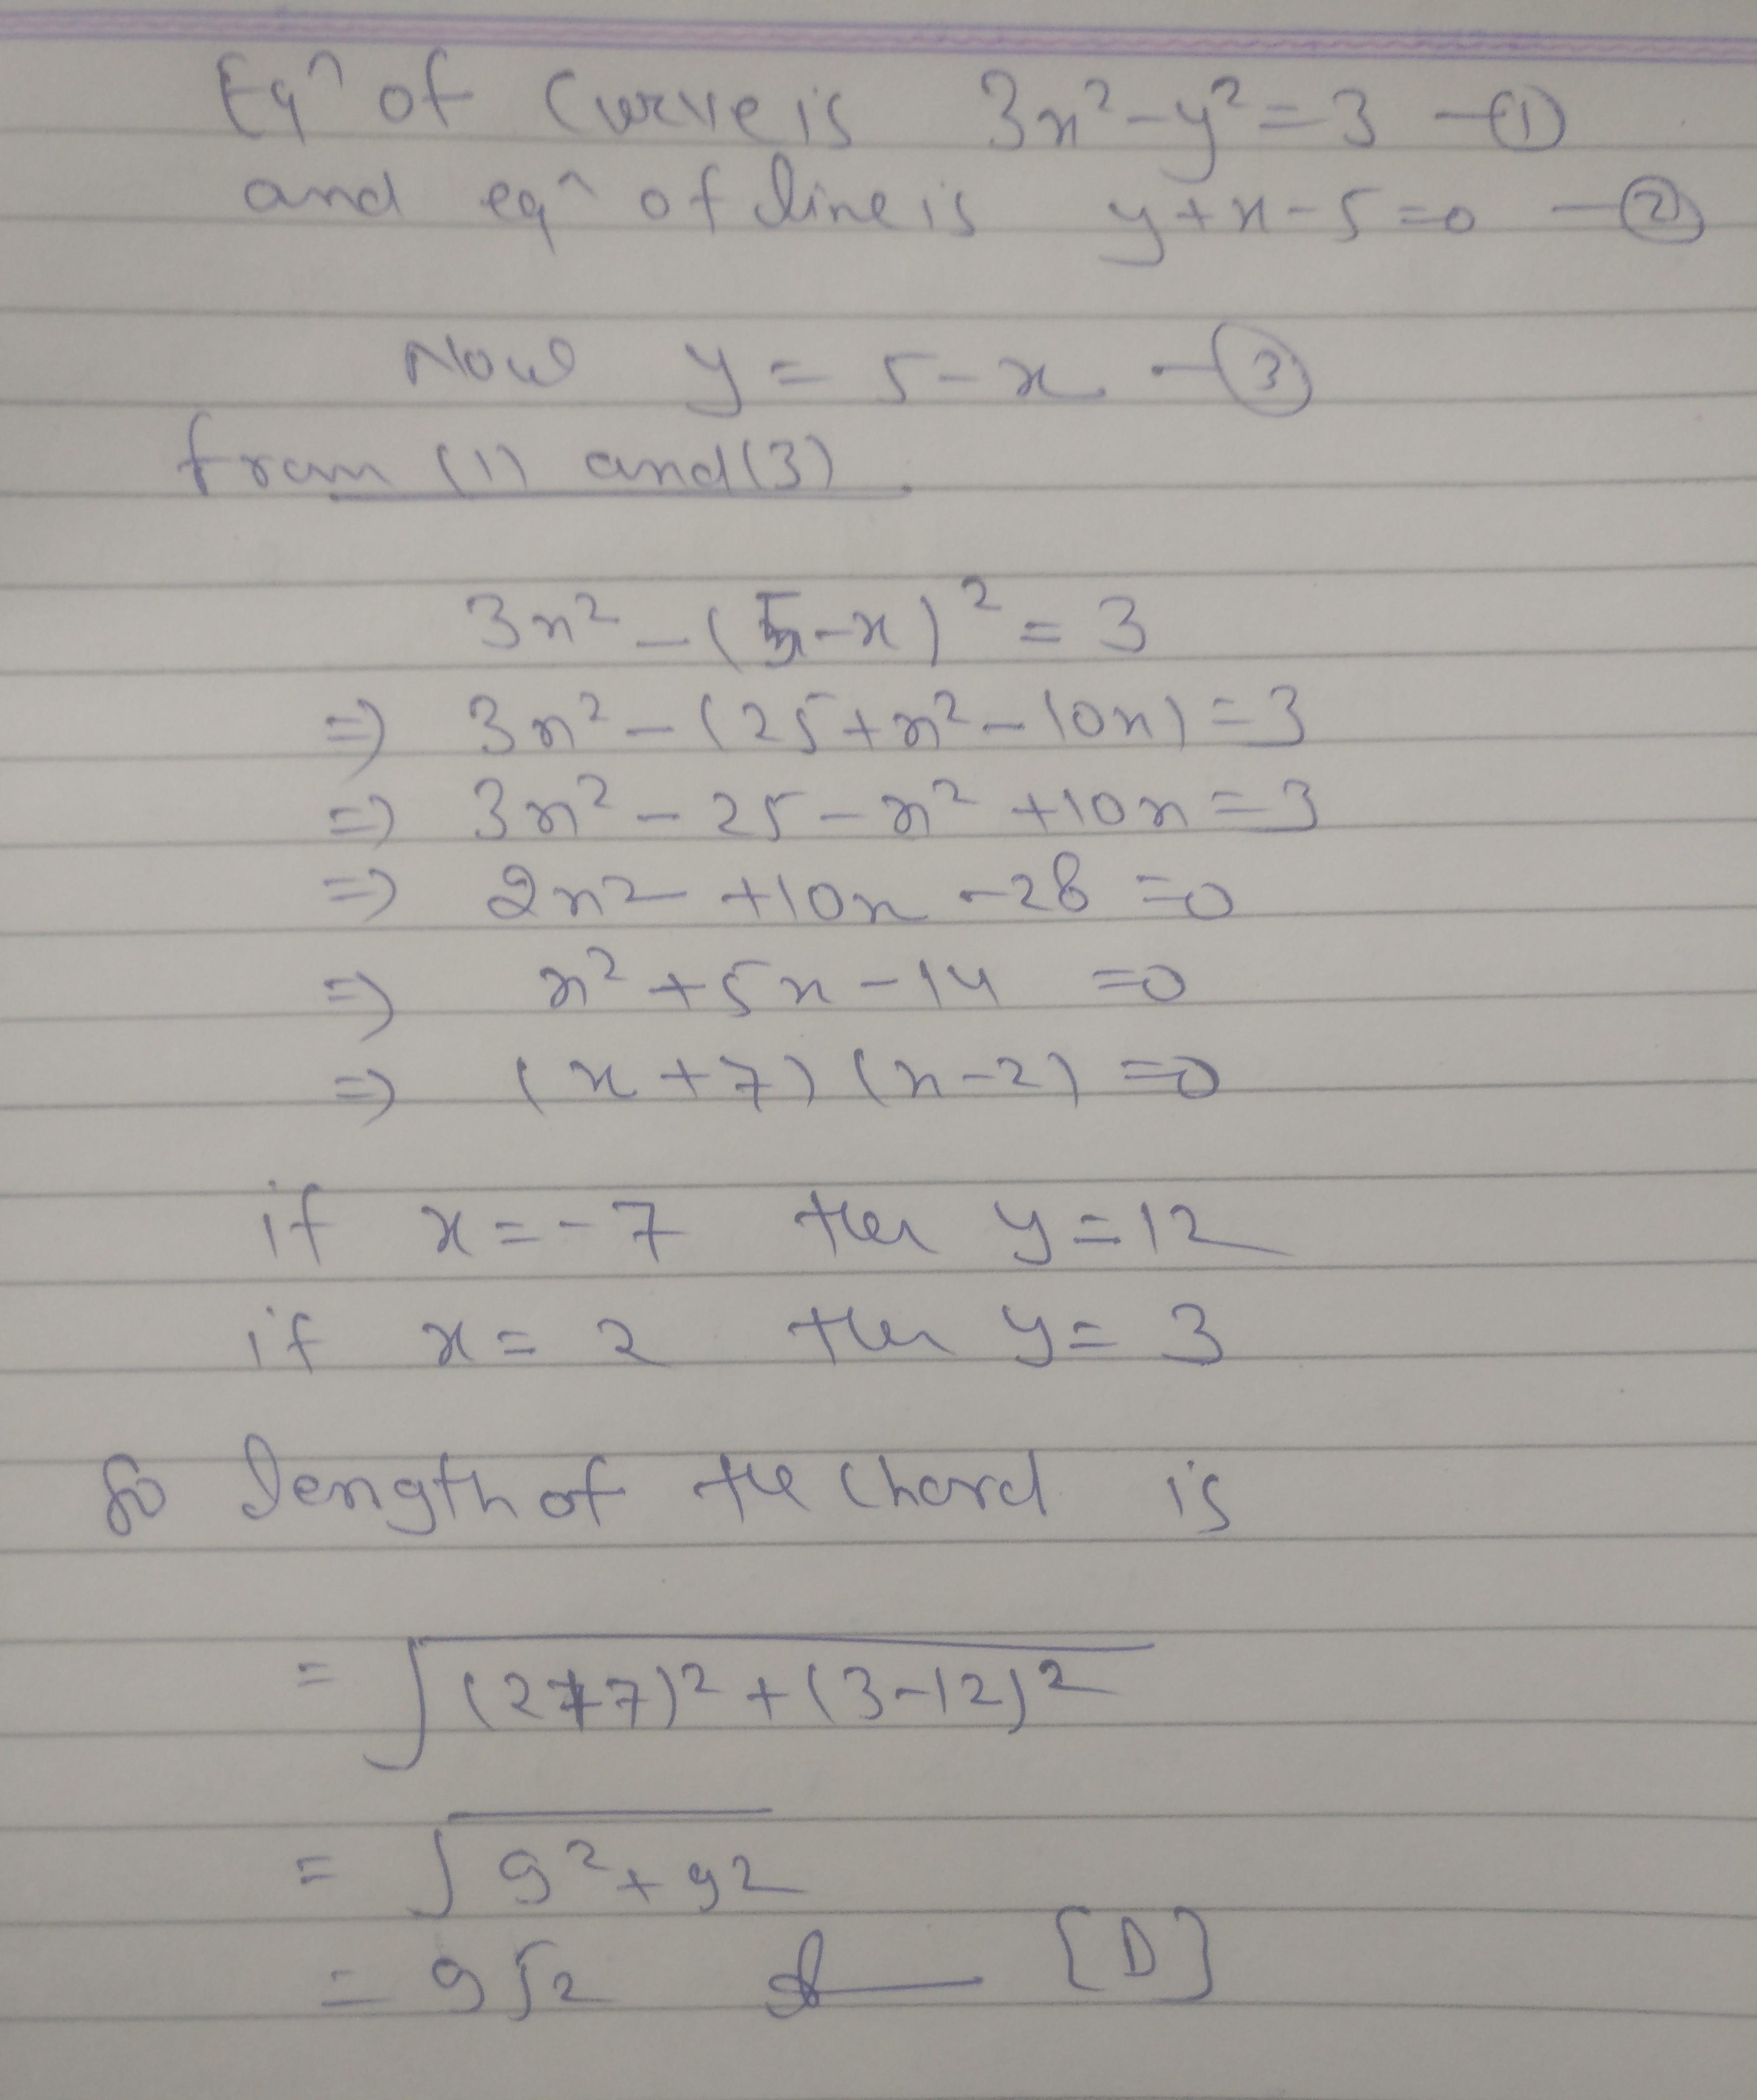 Eqⁿ of Curve is 3x²-y²=3 -(1)
and eqⁿ of line is y+x-5=0 -(2)
Now y = 5-x -(3)
from (1) and (3)
3x² -(5-x)² = 3
⇒ 3x² -(25+x²-10x)=3
⇒ 3x² - 25 - x² +10x=3
⇒ 2x² +10x -28 =0
⇒ x² +5x -14 =0
⇒ (x+7)(x-2)=0
if x=-7 then y=12
if x=2 then y=3
So length of the chord is
= √((2+7)²+(3-12)²)
= √(9²+9²)
= 9√2 [D]